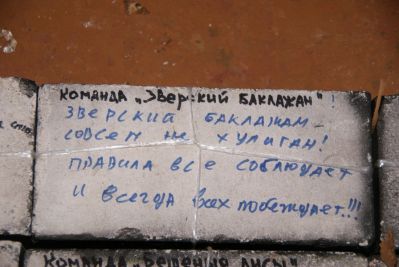 Команда „Зверский баклажан"!
Зверский баклажан –
совсем не хулиган!
Правила все соблюдает
и всегда всех побеждает!!!
Команда „Бешеная